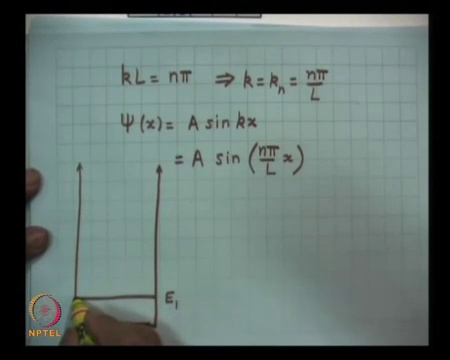 kL = nπ ⇒ k = kₙ = nπ/L
Ψ(x) = A sin kx
= A sin (nπ/L x)
E₁
NPTEL